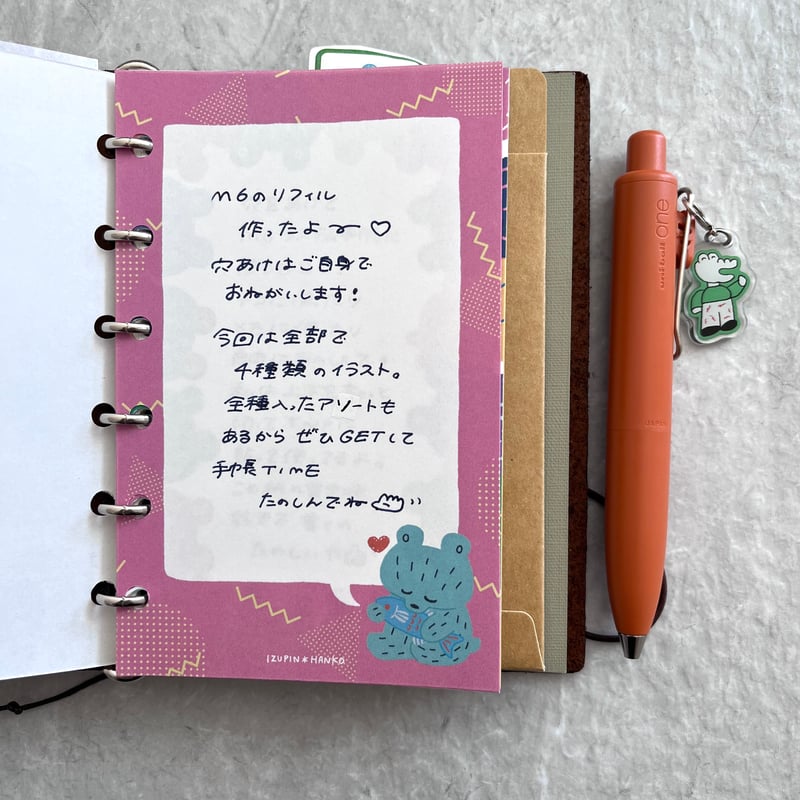 M6のリフィル
作ったよ〜♡
穴あけはご自身で
おねがいします!
今回は全部で
4種類のイラスト。
全種入ったアソートも
あるから ぜひGETして
手帳TIME
たのしんでね
IZUPIN*HANKO
uni-ball one
JAPAN